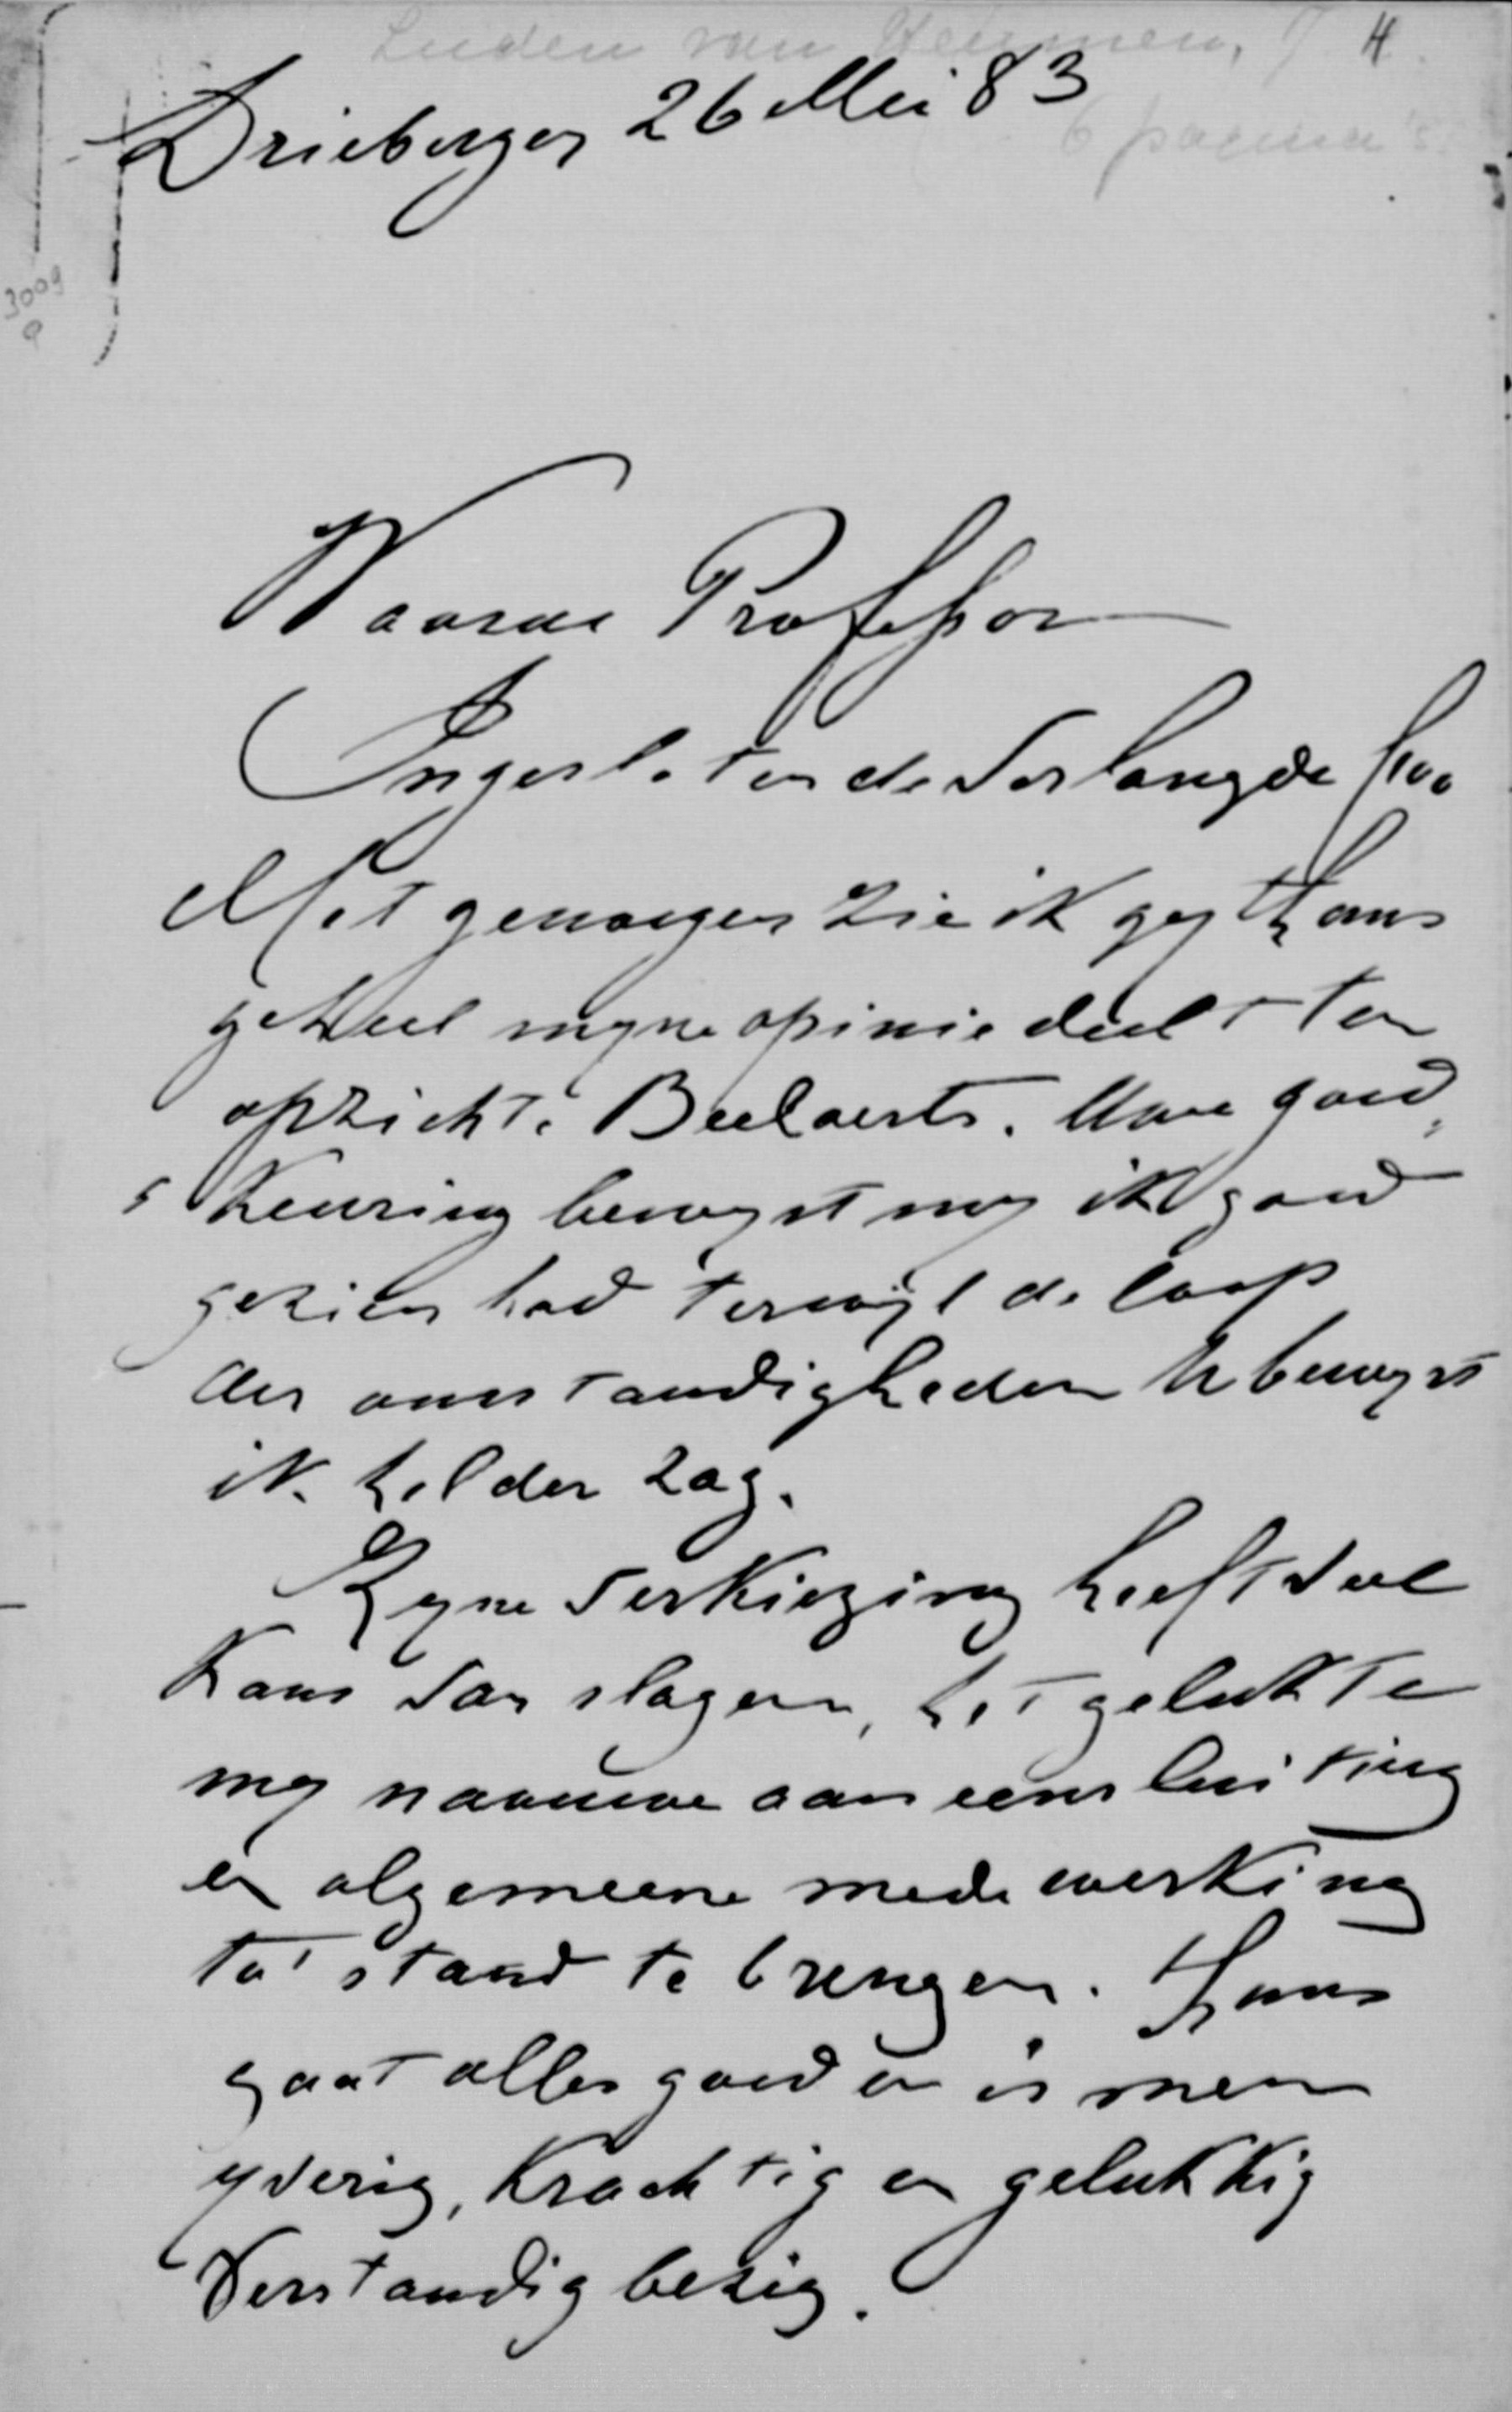 Luden van Heumen, 4
Driebergen 26 Mei 83
6 pagina's.
3009
a
Waarde Professor
Ingesloten de verlangde f100
Met genoegen zie ik gij thans
geheel myne opinie deelt ten
opzichte Beelaerts. Uwe goed,
keuring bewyst my ik goed
gezien had terwijl de loop
der omstandigheden U bewyst
ik helder zag.
Zyne verkiezing heeft veel
kans van slagen, het gelukte
my naauwe aaneensluiting
en algemeene medewerking
tot stand te brengen. Thans
gaat alles goed en is men
yverig, krachtig en gelukkig
verstandig bezig.